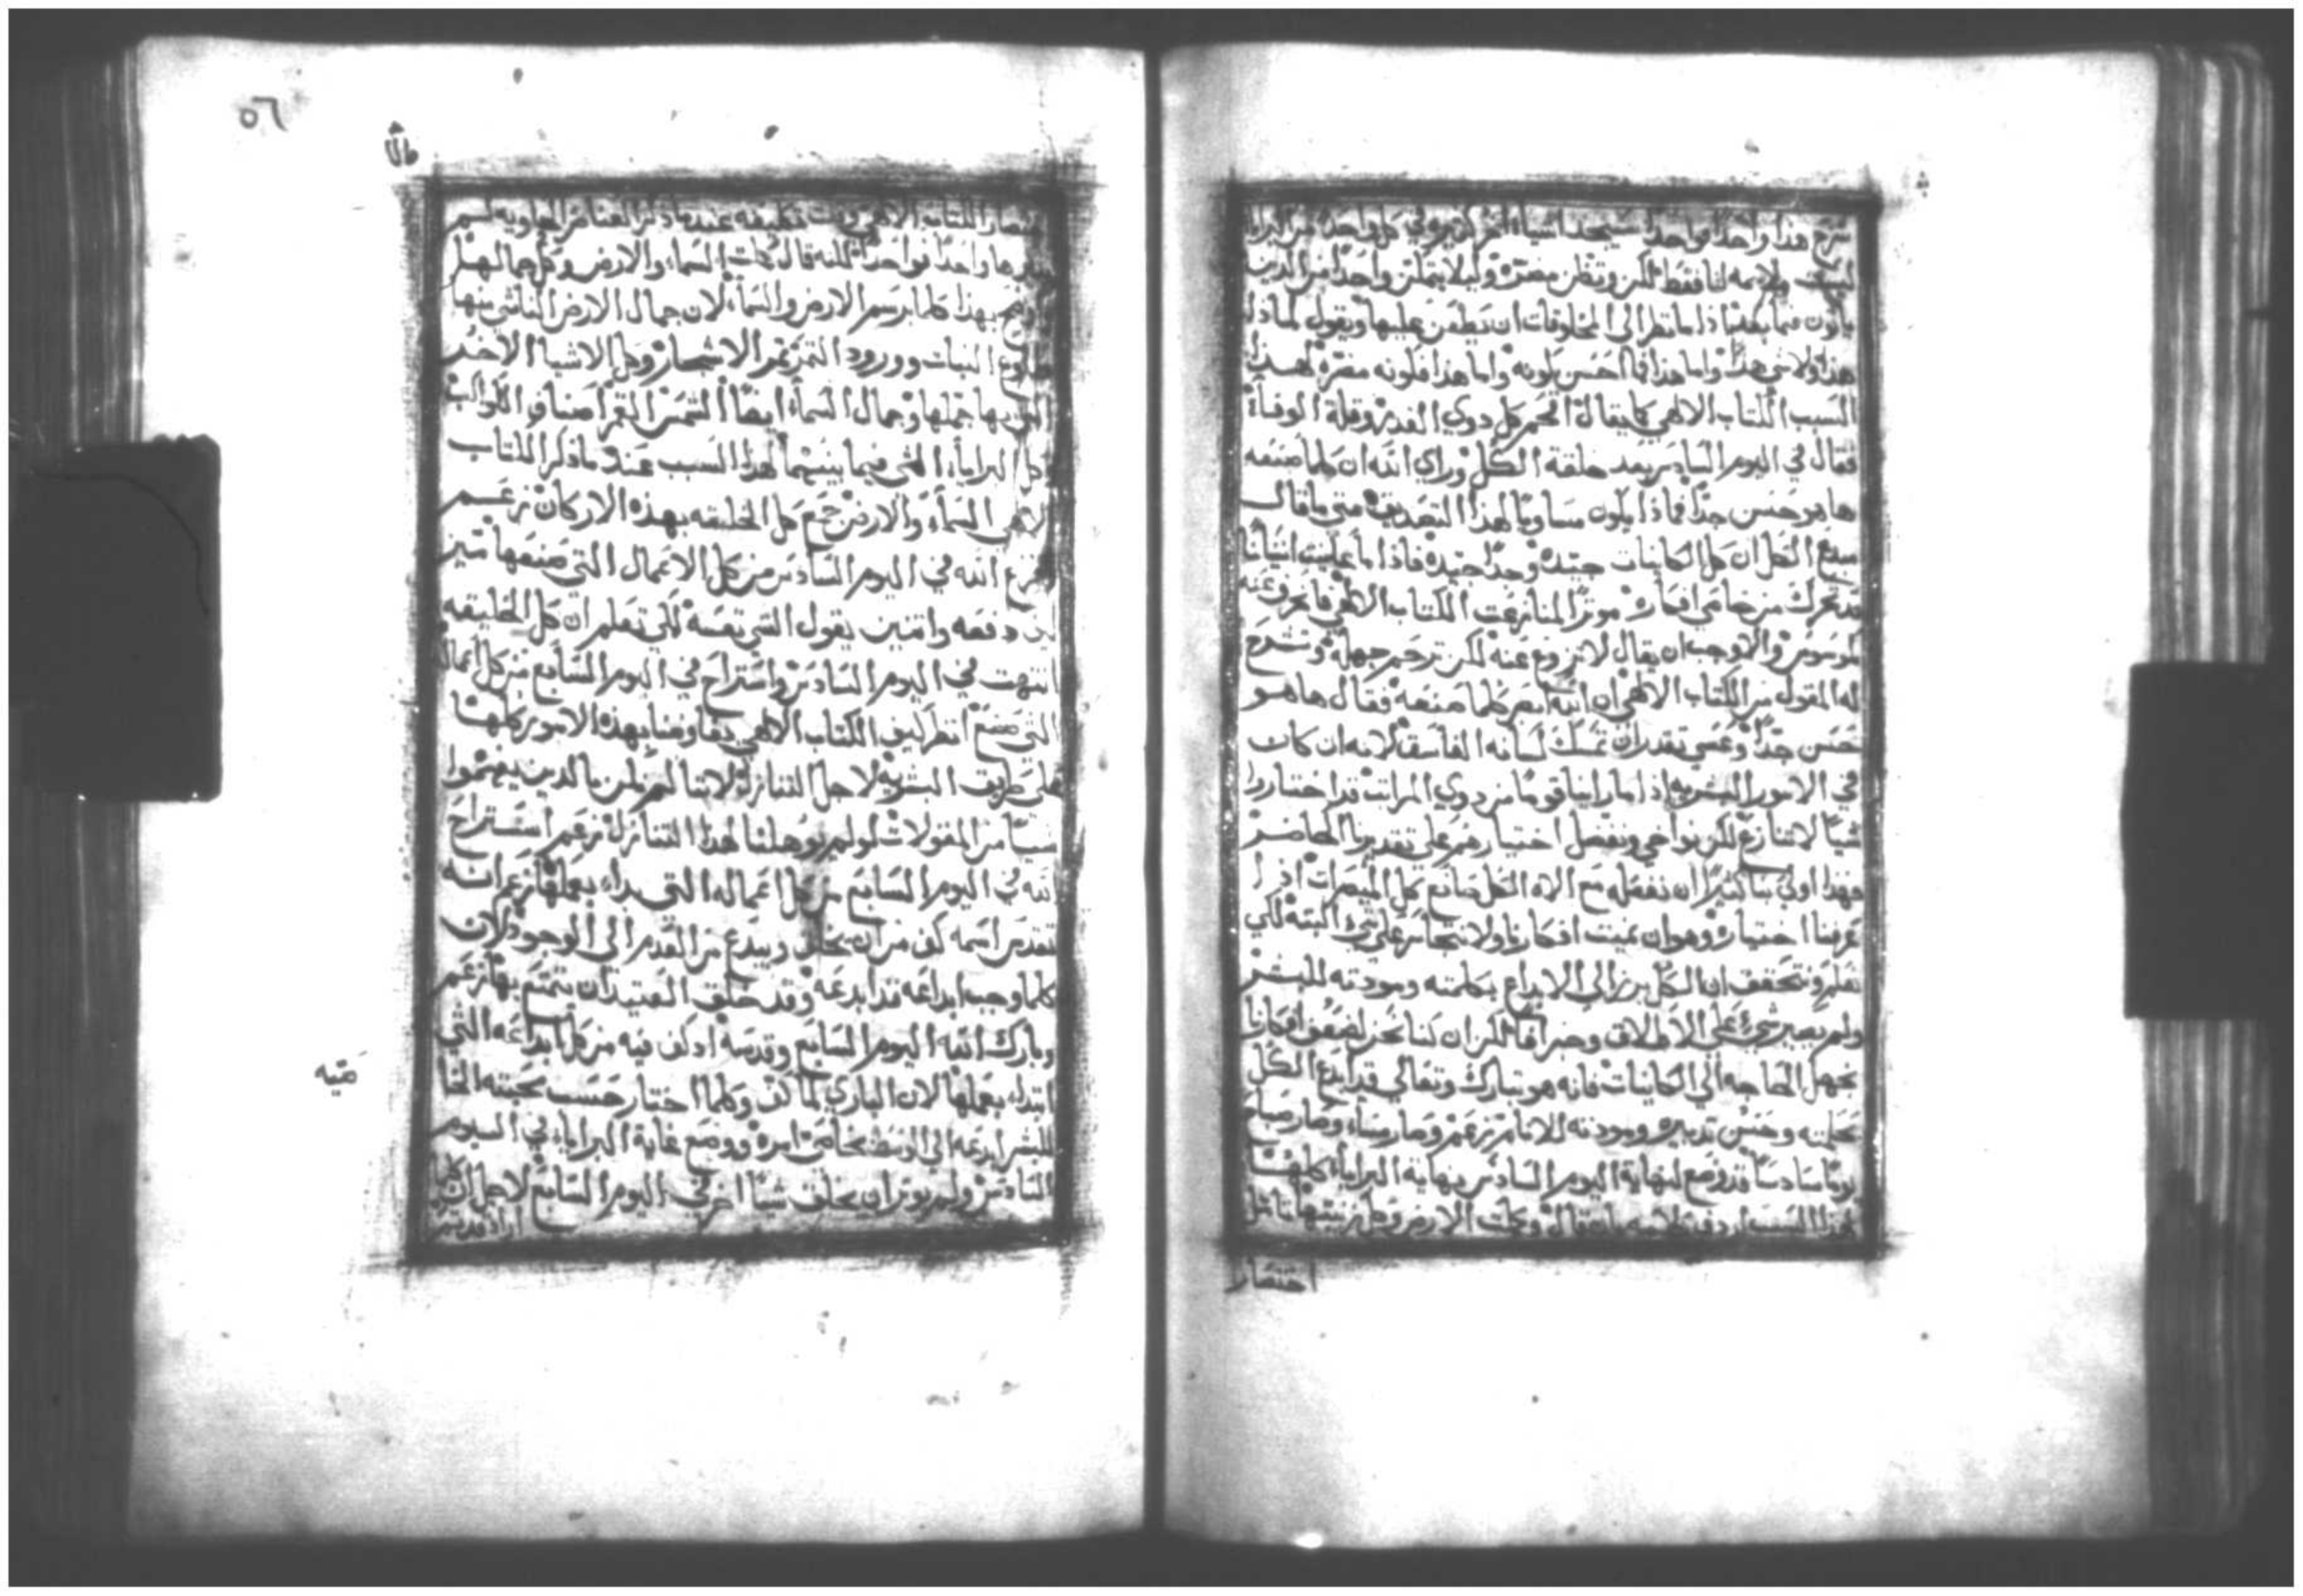 شرح هذا واحدًا فواحدًا سيجد اشياء اخر كثيره في كل واحد من البرايا
ليست ملايمه لنا فقط لكن وتظن مضرّه وليلا يتمكن واحدًا من الذين
ياتون فيما بعد اذا ما نظر الى المخلوقات ان يطعن عليها ويقول لماذا
هذا ولاي شي هذا واما هذا فما احسن كونه واما هذا فكونه مضره لهذا
السبب الكتاب الالهي كما يقال الجم كل دوي الغدر وقلة الوفاء
فقال في اليوم السادس بعد خلقة الكل وراي الله ان كلما صنعه
ها هو حسن جدًا فماذا يكون مساويًا لهذا التصديق متي ما قال
مبدع الكل ان كل الكاينات جيده وجدًا جيده فاذا ما عاينت انسانًا
قد تحرك من خامي افكاره موثرًا لمنازعت الكتاب الالهي فانحرف عنه
كموسوس والاوجب ان يقال لا تزوع عنه لكن ترحم جهله وتشرح
له المقول من الكتاب الالهي ان الله ابصر كلما صنعه فقال ها هو
حسن جدًا وعسي تقدر ان تمسك لسانه الفاسق لانه ان كان
في الامور البشريه اذا ما راينا قومًا من دوي المراتب قد اختاروا
شيًا لا تنازع لكن نواحي ونفضل اختيارهم على تقديرنا الخاص
فهذا اولى بنا كثيرًا ان نفعله مع الاه الكل صانع كل المبصرات اذا
عرفنا اختياره وهو ان نميت افكارنا ولا نتجاسر على شي البته لكي
نعلم ونتحقق ان الكل برز الي الابداع بكلمته ومودته للبشر
ولم يصير شي على الاطلاق وجزافا لكن ان كنا نحن لضعف افكارنا
نجهل الحاجه الي الكاينات فانه هو تبارك وتعالي قد ابدع الكل
بحكمته وحسن تدبيره ومودته للانام زعم وصار مساء وصار صباح
يومًا سادسًا قد وضع لنهاية اليوم السادس نهاية البرايا كلها
لهذا السبب اردف كلامه بان قال وكملت الارض وكل زينتها تامل
اختصار
٥٦
اختصار الكتاب الالهي كيف عند ما ذكر العناصر الحاويه لسم
واحدًا فواحدًا لكنه قال كملت السماء والارض وكل جمالها
بهذا كلما برسم الارض والسماء لان جمال الارض الناشي منها
طلوع النبات وورود الثمر ثم الاشجار وكل الاشيا الاخر
التي بها جملها وجمال السماء ايضًا الشمس القمر اصناف الكواكب
كل البرايا التي فيما بينهما لهذا السبب عند ما ذكر الكتاب
الالهي السماء والارض جمع كل الخليقه بهذه الاركان زعم
وفرغ الله في اليوم السادس من كل الاعمال التي صنعها تبين
دفعه واثنين يقول الشي نفسه لكي تعلم ان كل الخليقه
انتهت في اليوم السادس واستراح في اليوم السابع من كل اعماله
التي صنع انظر كيف الكتاب الالهي يفاوضنا بهذه الامور كلها
على طريق البشريه لاجل التنازل لاننا لم نكن بالدين يفهموا
شيًا من المقولات لو لم يوهلنا لهذا التنازل زعم استراح
الله في اليوم السابع من كل اعماله التي بداء بعملها زعم انه
تقدس اسمه كف من ان يخلق ويبدع من العدم الى الوجود لان
كلما وجب ابداعه قد ابدعه وقد خلق العتيد ان يتمتع بها زعم
وبارك الله اليوم السابع وقدسه اد كف فيه من كل ابداعه التي
ابتدا بعملها لان الباري لما كف وكلما اختار حسب محبته الخا
للبشر ابدعه الي الوسط بخاص امره ووضع غاية البرايا في اليوم
السادس ولم يوثر ان يخلق شيًا اخر في اليوم السابع لاجل ان كلما
اراد قد تم
صّيه